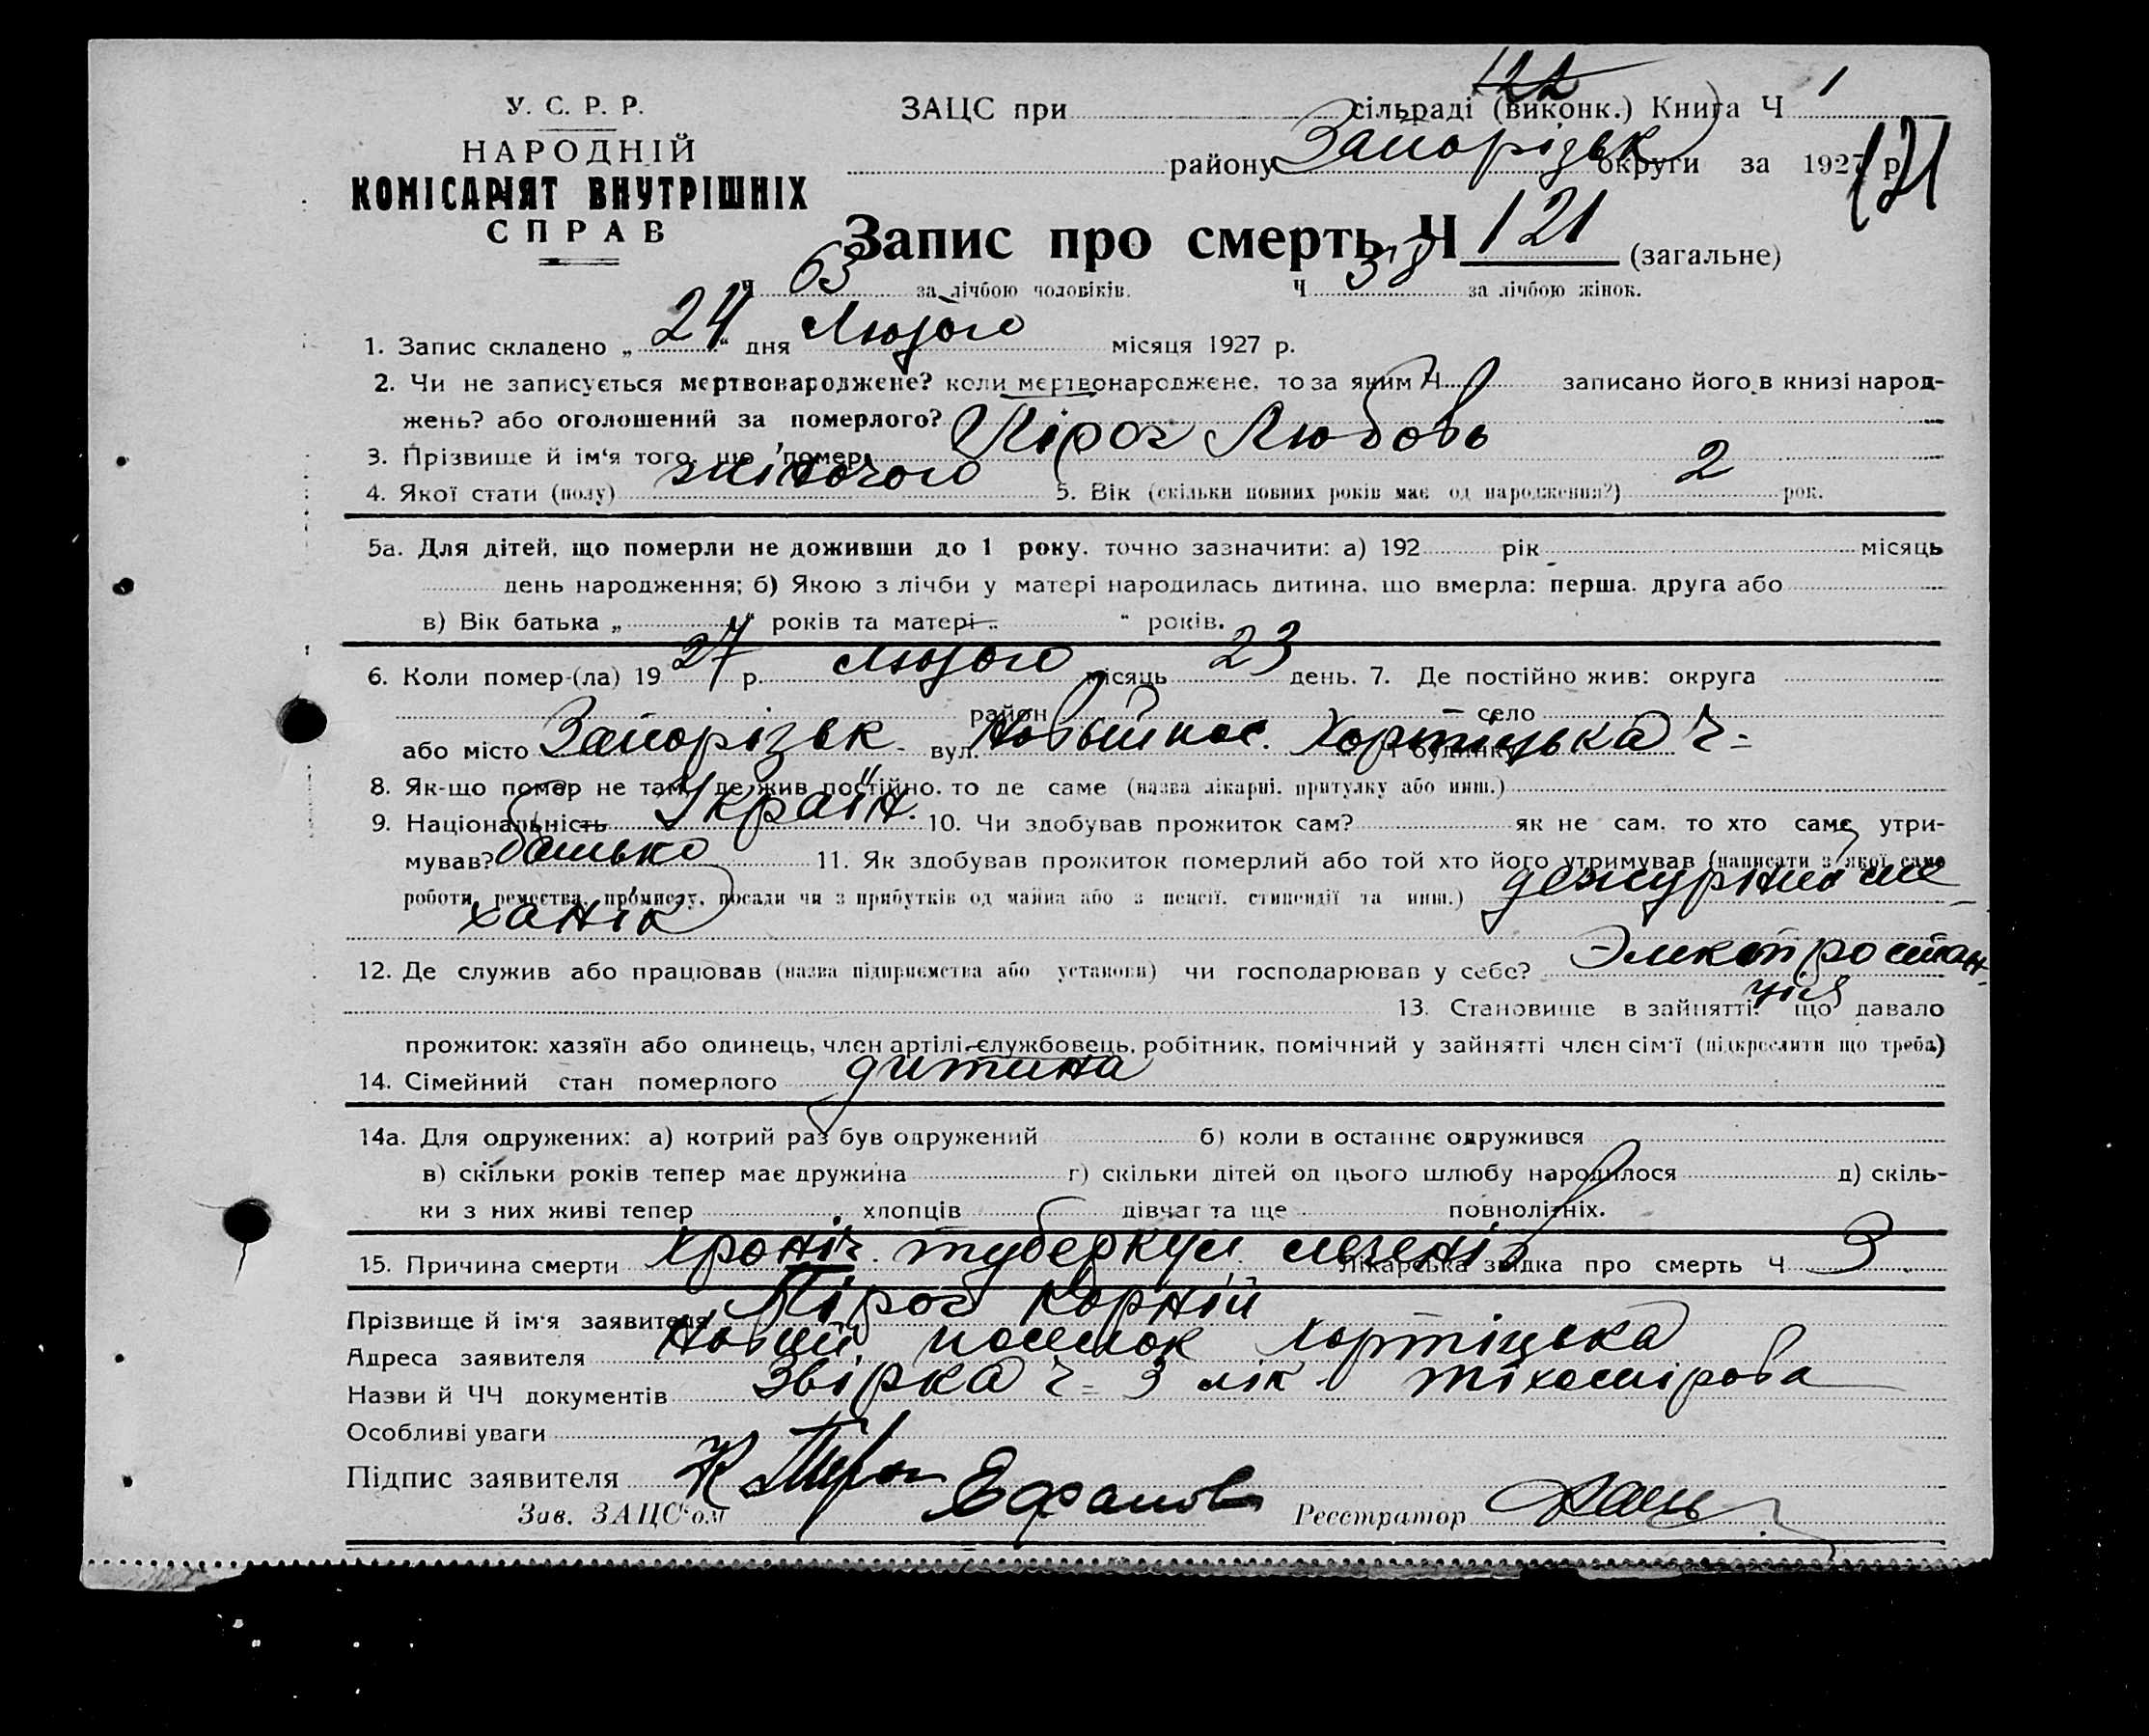 У. С. Р. Р.
НАРОДНІЙ
КОМІСАРІЯТ ВНУТРІШНІХ
СПРАВ
122
ЗАЦС при сільраді (виконк.) Книга Ч 1
району Запорізьк округи за 1927 р.
121
Запис про смерть Ч 121 (загальне)
Ч 63 за лічбою чоловіків. Ч 58 за лічбою жінок.
1. Запис складено „ 24 “ дня Лютого місяця 1927 р.
2. Чи не записується мертвонароджене? коли мертвонароджене, то за яким Ч записано його в книзі народ-
жень? або оголошений за померлого?
3. Прізвище й ім‘я того, що помер Пірог Любовь
4. Якої стати (полу) жіночого 5. Вік (скільки повних років має од народження?) 2 рок.
5а. Для дітей, що померли не доживши до 1 року, точно зазначити: а) 192 рік місяць
день народження; б) Якою з лічби у матері народилась дитина, що вмерла: перша, друга або
в) Вік батька „ “ років та матері „ “ років.
6. Коли помер-(ла) 19 27 р. лютого місяць 23 день. 7. Де постійно жив: округа
район село
або місто Запорізьк вул. Новый пос. Хортіцька Ч будинку
8. Як-що помер не там, де жив постійно, то де саме (назва лікарні, притулку або инш.)
9. Національність Україн. 10. Чи здобував прожиток сам? як не сам, то хто саме утри-
мував? батько 11. Як здобував прожиток померлий або той хто його утримував (написати з якої саме
роботи, ремества, промислу, посади чи з прибутків од майна або з пенсії, стипендії та инш.) дежурный ме-
ханік
12. Де служив або працював (назва підприємства або установи) чи господарював у себе? Электростан-
ція
13. Становище в зайнятті, що давало
прожиток: хазяїн або одинець, член артілі, службовець, робітник, помічний у зайнятті член сім‘ї (підкреслити що треба)
14. Сімейний стан померлого дитина
14а. Для одружених: а) котрий раз був одружений б) коли в останнє одружився
в) скільки років тепер має дружина г) скільки дітей од цього шлюбу народилося д) скіль-
ки з них живі тепер хлопців дівчат та ще повнолітніх.
15. Причина смерти Хроніч. туберкул. легенів Лікарська звідка про смерть Ч 3
Прізвище й ім‘я заявителя Пірог Корній
Адреса заявителя Новий поселок Хортіцька
Назви й ЧЧ документів Звірка Ч 3 лік. Тіхомірова
Особливі уваги
Підпис заявителя К Пирог
Зав. ЗАЦС‘ом Ефанов Реєстратор